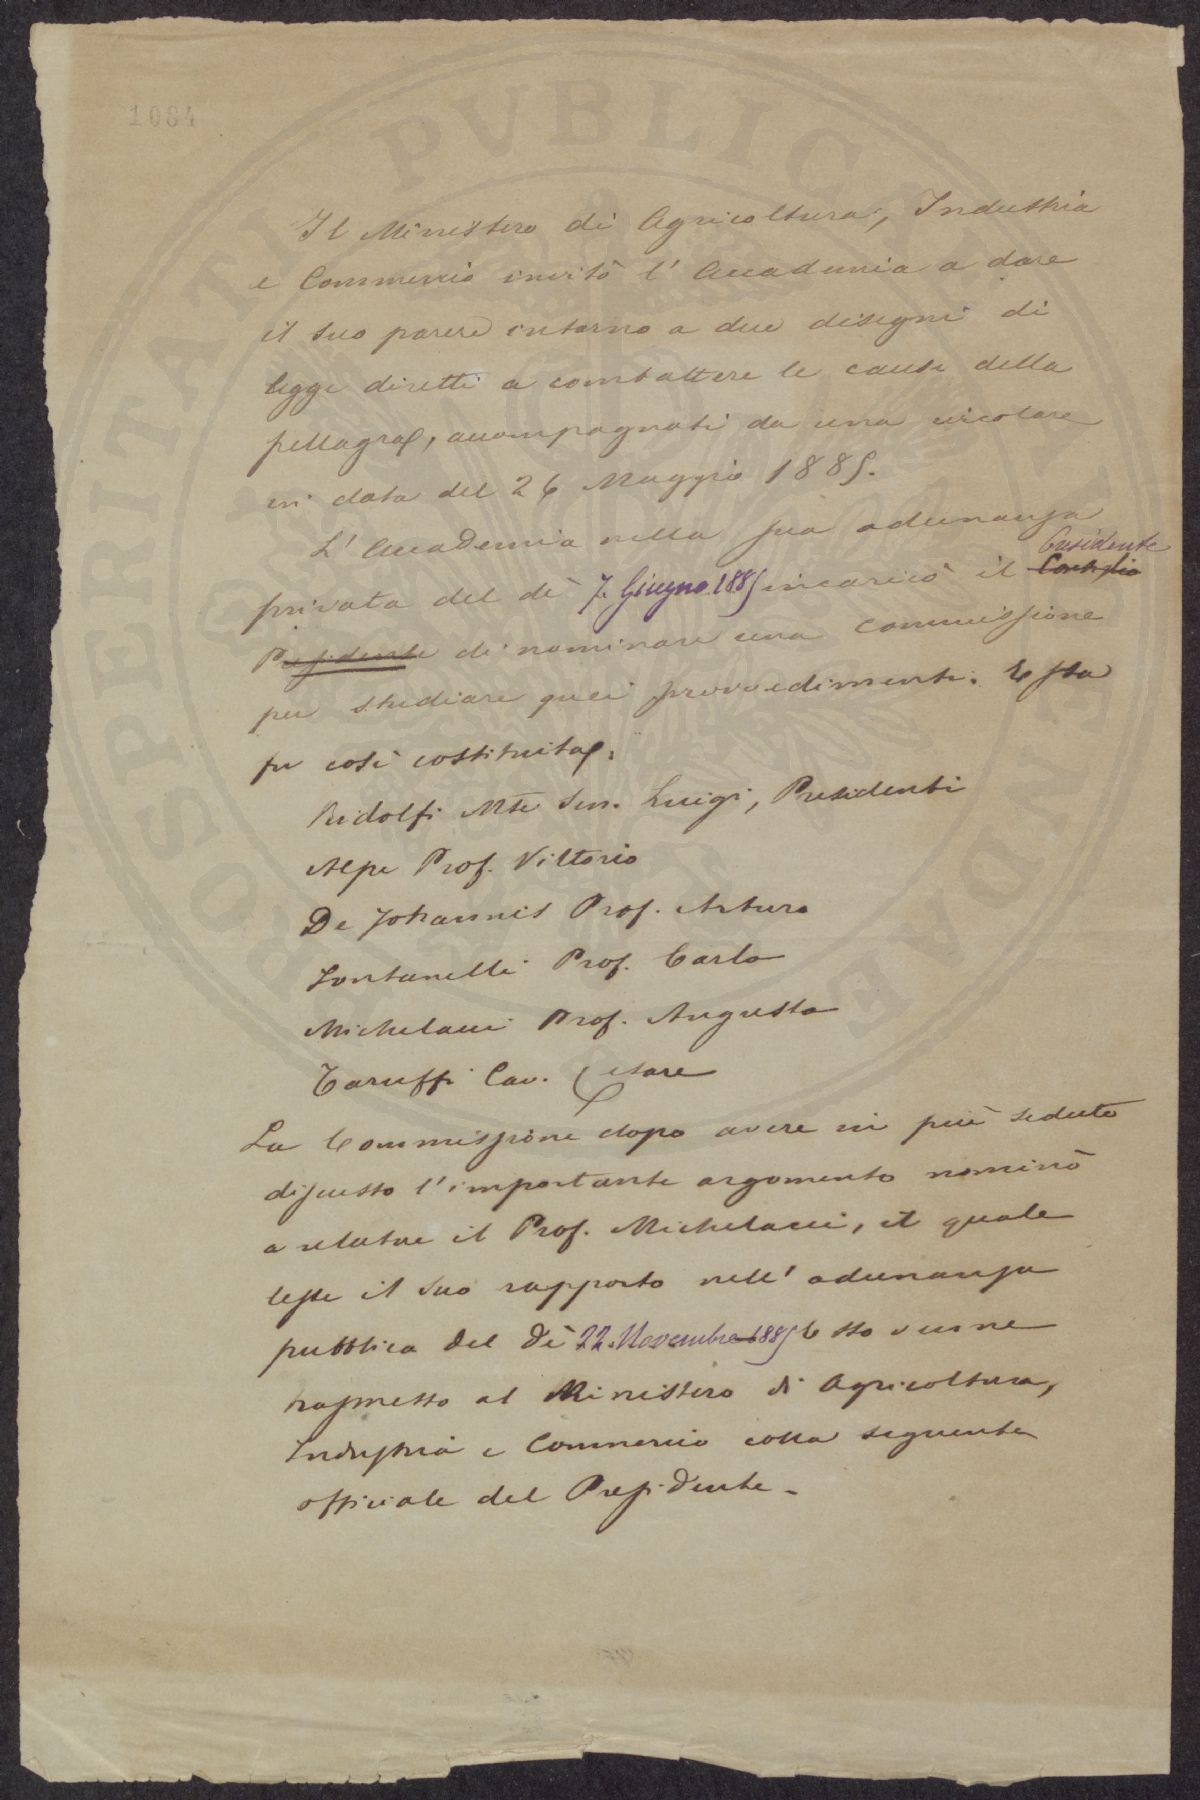 1084
Il Ministero di Agricoltura, Industria
e Commercio invitò l'Accademia a dare
il suo parere intorno a due disegni di
legge diretti a combattere le cause della
pellagra, accompagnati da una circolare
in data del 26 Maggio 1885.
L'Accademia nella sua adunanza
Presidente
privata del dì 7. Giugno 1885 incaricò il Consiglio
Presidente di nominare una commissione
per studiare quei provvedimenti. Essa
fu così costituita.
Ridolfi Mse Sen. Luigi, Presidente
Alpe Prof. Vittorio
De Johannis Prof. Arturo
Fontanelli Prof. Carlo
Michelacci Prof. Augusto
Taruffi Cav. Cesare
La Commissione dopo avere in più sedute
discusso l'importante argomento nominò
a relatore il Prof. Michelacci, il quale
lesse il suo rapporto nell'adunanza
pubblica del dì 22. Novembre 1885 Esso venne
trasmesso al Ministero di Agricoltura,
Industria e Commercio colla seguente
officiale del Presidente.
PROSPERITATI PVBLICAE